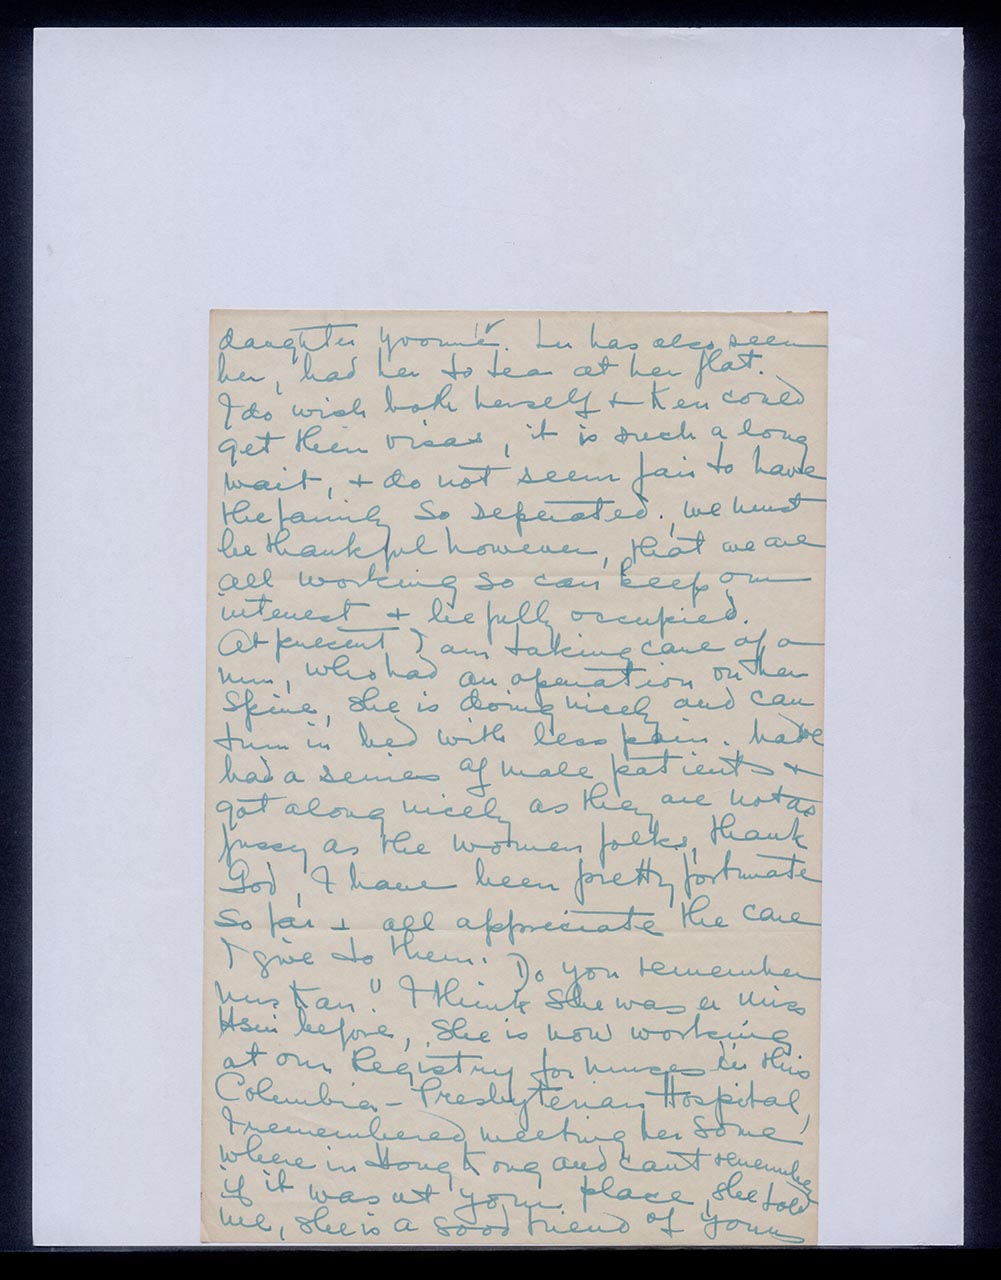 daughter Yvonne. Lu has also seen
her, had her to tea at her flat.
I do wish both herself & Ken could
get their visas, it is such a long
wait, & do not seem fair to have
the family so seperated. We must
be thankful however, that we are
all working so can keep our
interest & be fully occupied.
At present I am taking care of a
nun, who had an operation on her
Spine, she is doing nicely and can
turn in bed with less pain. have
had a series of male patients &
got along nicely as they are not as
fussy as the women folks, thank
God, I have been pretty fortunate
so far & all appreciate the care
I give to them. Do you remember
Mrs Kan? I think she was a Miss
Hsin before, She is now working
at our Registry for nurses in this
Columbia-Presbyterian Hospital,
I remembered meeting her some
where in Hong Kong and cant remember
if it was at your place, she told
me, she is a good friend of yours